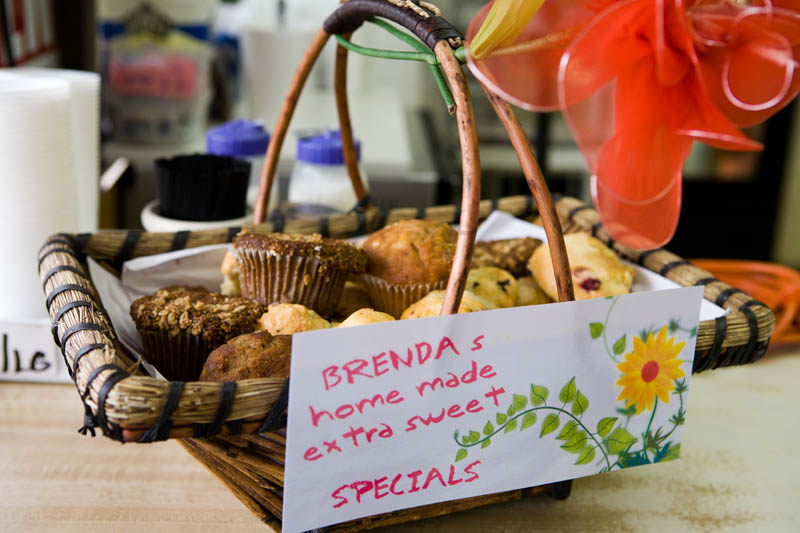 BRENDA s
home made
extra sweet
SPECIALS